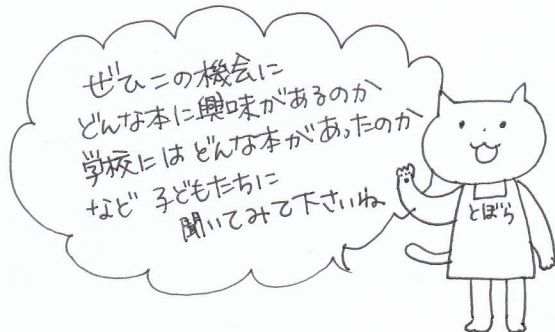 ぜひこの機会に
どんな本に興味があるのか
学校にはどんな本があったのか
など 子どもたちに
聞いてみて下さいね
とぼら